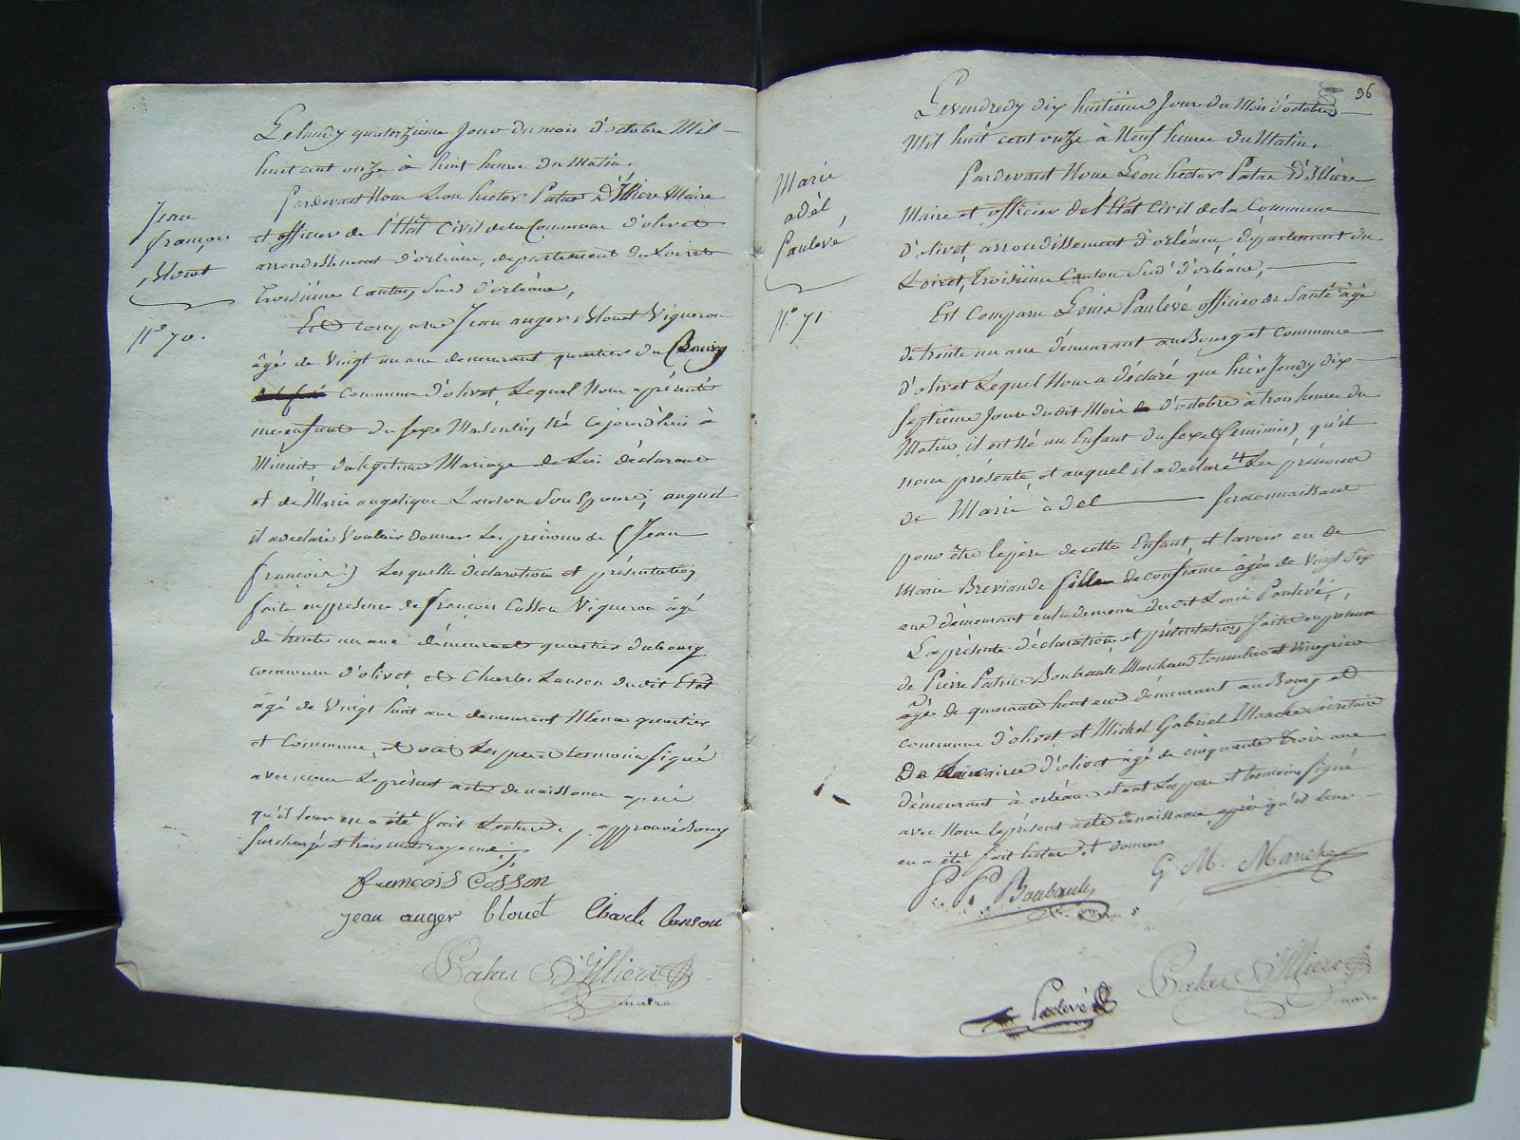 Jean
françois
Blouet
N.° 70.
Le lundy quatorzième Jour du mois d'octobre Mil
huit cent onze à huit heure du Matin.
Pardevant Nous Léon hector Patas D'Illiers Maire
et officier de l'État Civil de la Commune d'olivet
arrondissement d'orléans, département du Loiret
troisième Canton Sud d'orléans,
Est comparu Jean auger Blouet Vigneron
âgé de Vingt un ans demeurant quartier du Bourg
commune d'olivet, Lequel Nous a présenté
un enfant du sexe Masculin, Né cejourd'hui à
Minuit du légitime Mariage de Lui déclarant
et de Marie angélique Lanson Son Epouse, auquel
il a déclaré Vouloir donner Les prénoms de (Jean
françois) Lesquelles déclaration et présentation
faite en présence de françois Cosson Vigneron âgé
de trente un ans demeurant quartier du bourg
commune d'olivet et Charles Lanson dudit État
âgé de Vingt huit ans demeurant Même quartier
et Commune, et ont Les père et témoins signé
avec nous Le présent acte de naissance après
qu'il leur en a été fait Lecture, approuvé Bourg
Surchargé et trois mots rayé nul
françois Cosson
jean auger blouet Charle Lanson
Patas D'Illiers
maire
96
Marie
adèl
Paulevé
N.° 71
Le vendredy dix huitième Jour du Mois d'octobre
Mil huit cent onze à Neuf heures du Matin.
Pardevant Nous Léon hector Patas D'Illiers
Maire et officier de l'État Civil de la Commune
d'olivet arrondissement d'orléans, département du
Loiret, Troisième Canton Sud d'orléans,
Est Comparu Louis Paulevé officier de Santé âgé
de trente un ans demeurant au Bourg et commune
d'olivet Lequel Nous a déclaré que hier Jeudy dix
septième Jour dudit Mois d'octobre à trois heures du
Matin, il est Né un Enfant du sexe (féminin) qu'il
nous présente, et auquel il a déclaré Les prénoms
de Marie àdel se reconnaissant
pour être le père de cette Enfant, et l'avoir eu de
Marie Breviande fille de confiance âgée de Vingt six
ans demeurant en la demeure dudit Louis Paulevé,
La présente déclaration et présentation faite en présence
de Pierre Patrice Boubault Marchand tonnelier et Vinaigrier
âgé de quarante huit ans demeurant au Bourg et
commune d'olivet et Michel Gabriel Marche secrétaire
De Mairie d'olivet âgé de cinquante trois ans
demeurant à orléans et ont Les père et témoins signé
avec Nous le présent acte de naissance après qu'il leur
en a été fait lecture et donné
P. P. Boubault G M. Marche
Paulevé
Patas D'Illiers
maire